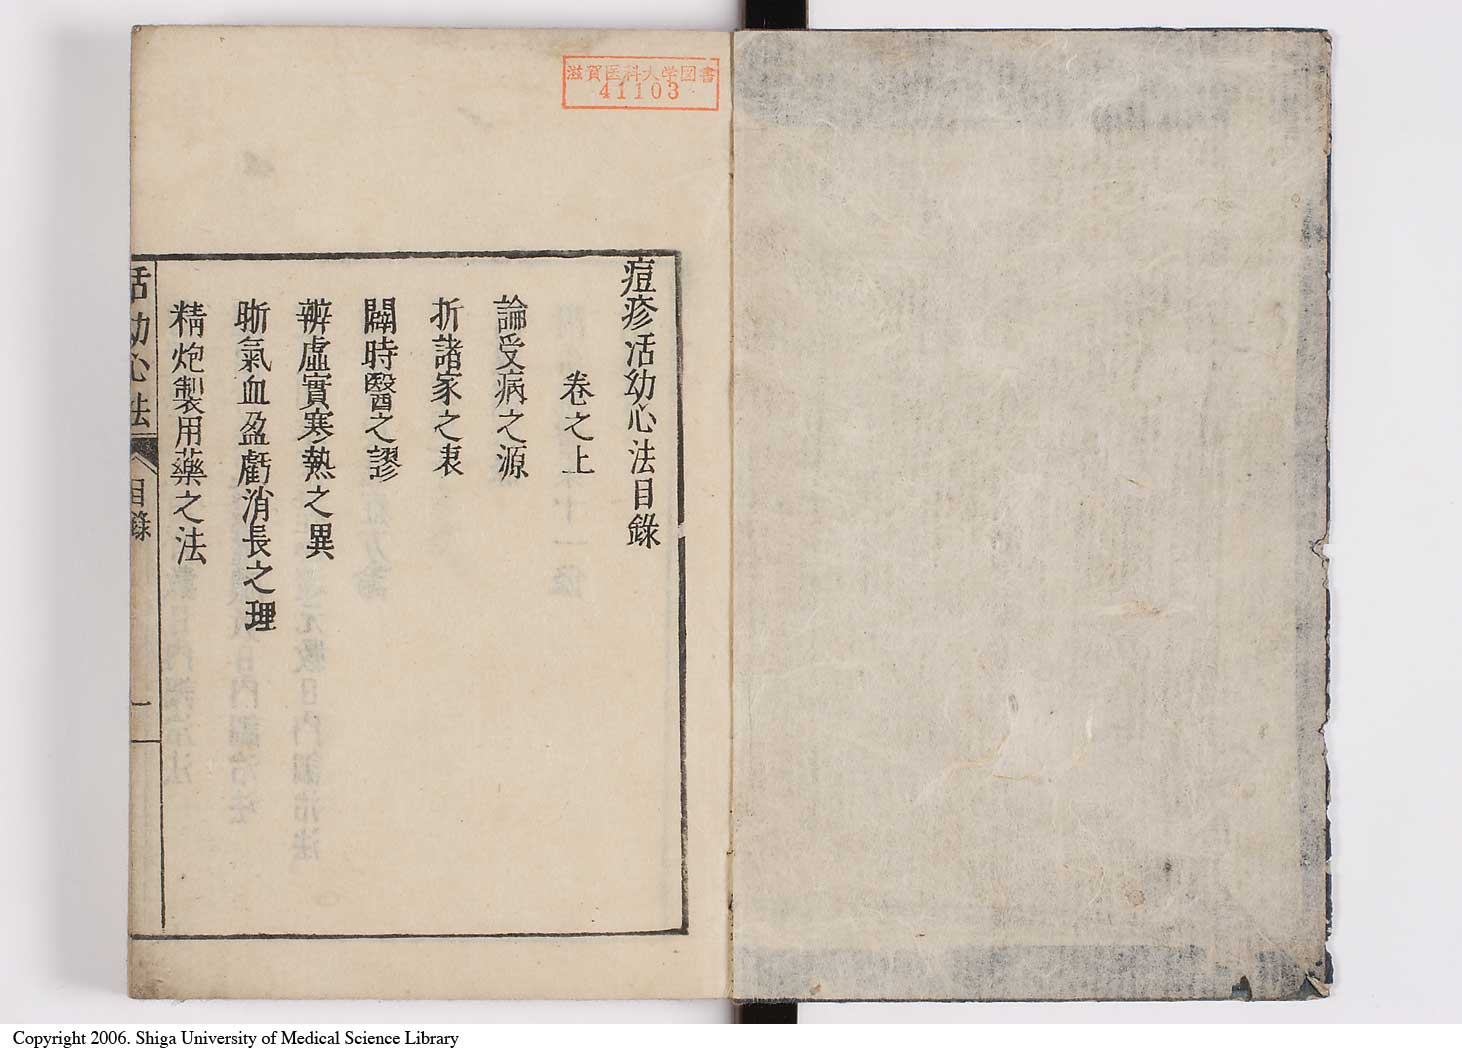 滋賀医科大学図書
41103
痘疹活幼心法目錄
卷之上
論受病之源
折諸家之衷
闢時醫之謬
辨虛實寒熱之異
晰氣血盈虧消長之理
精炮製用藥之法
活幼心法 目錄 一
Copyright 2006. Shiga University of Medical Science Library